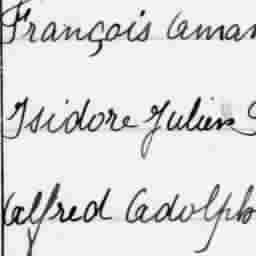 François Aman
Isidore Julien
Alfred Adolph